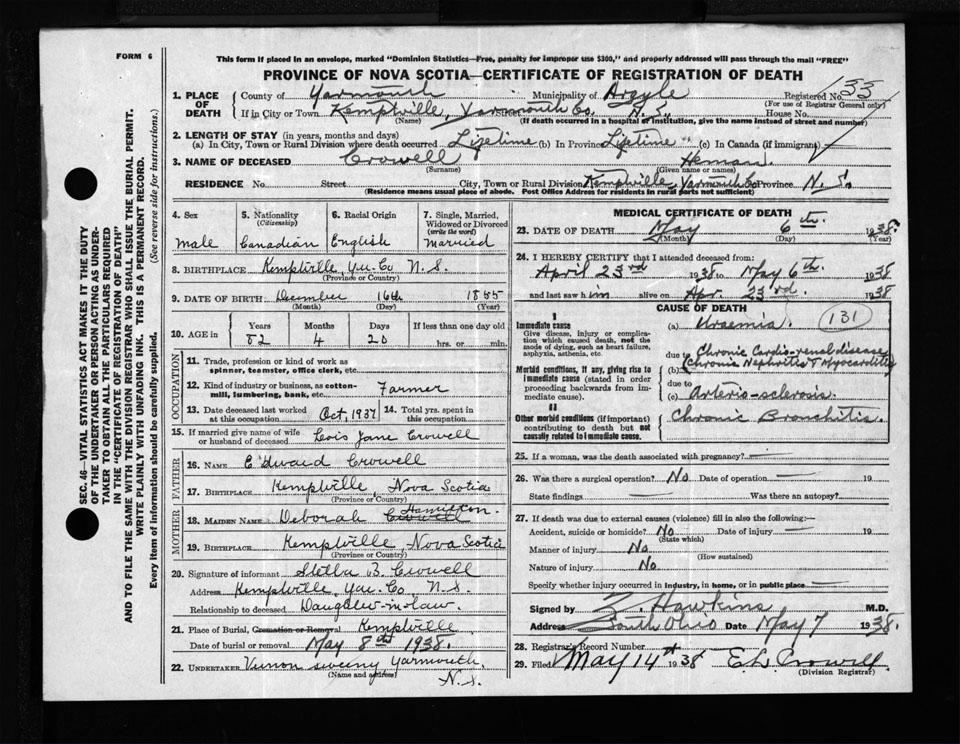 FORM 6
This form if placed in an envelope, marked "Dominion Statistics—Free, penalty for improper use $300," and properly addressed will pass through the mail "FREE"
PROVINCE OF NOVA SCOTIA—CERTIFICATE OF REGISTRATION OF DEATH
133
1. PLACE OF DEATH County of Yarmouth Municipality of Argyle Registered No.
(For use of Registrar General only)
If in City or Town Kemptville, Yarmouth Co. N. S. House No.
(Name) (If death occurred in a hospital or institution, give the name instead of street and number)
2. LENGTH OF STAY (in years, months and days)
(a) In City, Town or Rural Division where death occurred Lifetime (b) In Province Lifetime (c) In Canada (if immigrant)
3. NAME OF DECEASED Crowell Heman.
(Surname) (Given name or names)
RESIDENCE No. Street City, Town or Rural Division Kemptville, Yarmouth Co Province N. S.
(Residence means usual place of abode. Post Office Address for residents in rural parts not sufficient)
4. Sex 5. Nationality (Citizenship) 6. Racial Origin 7. Single, Married, Widowed or Divorced (write the word)
male Canadian English Married
8. BIRTHPLACE Kemptville, Yar. Co N. S.
(Province or Country)
9. DATE OF BIRTH December 16th 1855
(Month) (Day) (Year)
10. AGE in Years Months Days If less than one day old
82 4 20 hrs. or min.
OCCUPATION
11. Trade, profession or kind of work as spinner, teamster, office clerk, etc.
12. Kind of industry or business, as cotton-mill, lumbering, bank, etc. Farmer
13. Date deceased last worked at this occupation Oct, 1937 14. Total yrs. spent in this occupation
15. If married give name of wife or husband of deceased Lois Jane Crowell
FATHER
16. NAME Edward Crowell
17. BIRTHPLACE Kemptville, Nova Scotia
(Province or Country)
MOTHER
18. MAIDEN NAME Deborah Crowell Hamilton.
19. BIRTHPLACE Kemptville, Nova Scotia
(Province or Country)
20. Signature of informant Stella B. Crowell
Address Kemptville, Yar. Co. N. S.
Relationship to deceased Daughter-in-law.
21. Place of Burial, Cremation or Removal Kemptville
Date of burial or removal May 8th 1938.
22. UNDERTAKER Vernon Sweeny Yarmouth,
(Name and address) N. S.
MEDICAL CERTIFICATE OF DEATH
23. DATE OF DEATH May 6th. 1938
(Month) (Day) (Year)
24. I HEREBY CERTIFY that I attended deceased from:
April 23rd 1938 to May 6th. 1938
and last saw him alive on Apr. 23rd. 1938
CAUSE OF DEATH
I
Immediate cause (a) Uraemia. 131
Give disease, injury or complication which caused death, not the mode of dying, such as heart failure, asphyxia, asthenia, etc.
due to Chronic Cardio-renal disease
Morbid conditions, if any, giving rise to immediate cause (stated in order proceeding backwards from immediate cause).
(b) (Chronic Nephritis & Myocarditis)
due to
(c) Arterio-sclerosis.
II
Other morbid conditions (if important) contributing to death but not causally related to immediate cause.
Chronic Bronchitis
25. If a woman, was the death associated with pregnancy?
26. Was there a surgical operation? No Date of operation 19
State findings Was there an autopsy?
27. If death was due to external causes (violence) fill in also the following:
Accident, suicide or homicide? No Date of injury 19
(State which)
Manner of injury No
(How sustained)
Nature of injury No
Specify whether injury occurred in industry, in home, or in public place
Signed by Z. Hawkins M.D.
Address South Ohio Date May 7 1938.
28. Registrar's Record Number
29. Filed May 14th 1938 E. L. Crowell.
(Division Registrar)
SEC. 46—VITAL STATISTICS ACT MAKES IT THE DUTY
OF THE UNDERTAKER OR PERSON ACTING AS UNDER-
TAKER TO OBTAIN ALL THE PARTICULARS REQUIRED
IN THE "CERTIFICATE OF REGISTRATION OF DEATH"
AND TO FILE THE SAME WITH THE DIVISION REGISTRAR WHO SHALL ISSUE THE BURIAL PERMIT.
WRITE PLAINLY WITH UNFADING INK. THIS IS A PERMANENT RECORD.
Every item of information should be carefully supplied. (See reverse side for instructions.)